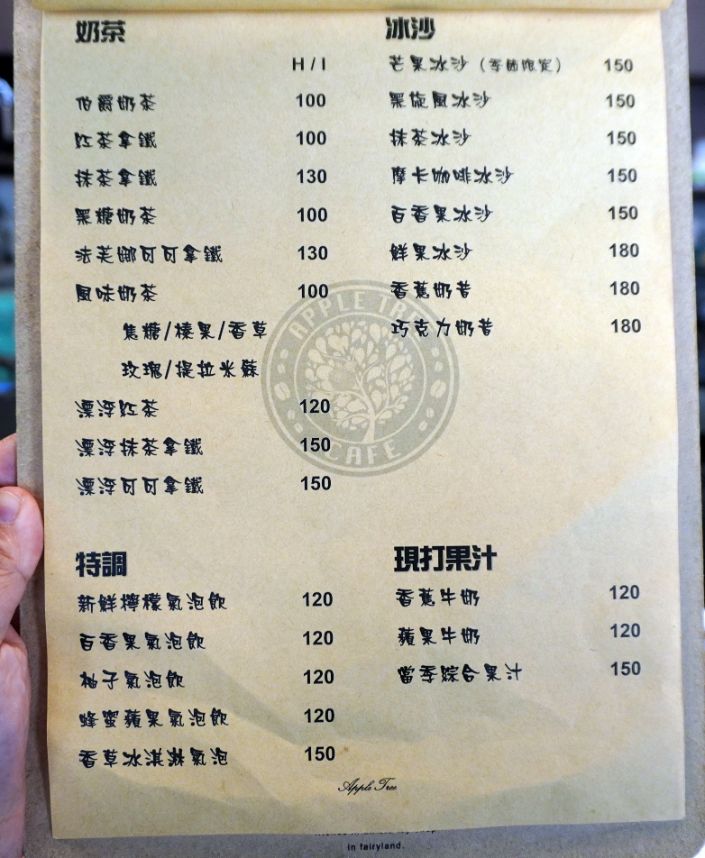 奶茶
H / I
伯爵奶茶 100
紅茶拿鐵 100
抹茶拿鐵 130
黑糖奶茶 100
法芙娜可可拿鐵 130
風味奶茶 100
焦糖/榛果/香草
玫瑰/提拉米蘇
漂浮紅茶 120
漂浮抹茶拿鐵 150
漂浮可可拿鐵 150
冰沙
芒果冰沙（季節限定） 150
黑旋風冰沙 150
抹茶冰沙 150
摩卡咖啡冰沙 150
百香果冰沙 150
鮮果冰沙 180
香蕉奶昔 180
巧克力奶昔 180
APPLE TREE
CAFE
特調
新鮮檸檬氣泡飲 120
百香果氣泡飲 120
柚子氣泡飲 120
蜂蜜蘋果氣泡飲 120
香草冰淇淋氣泡 150
現打果汁
香蕉牛奶 120
蘋果牛奶 120
當季綜合果汁 150
Apple Tree
in fairyland.